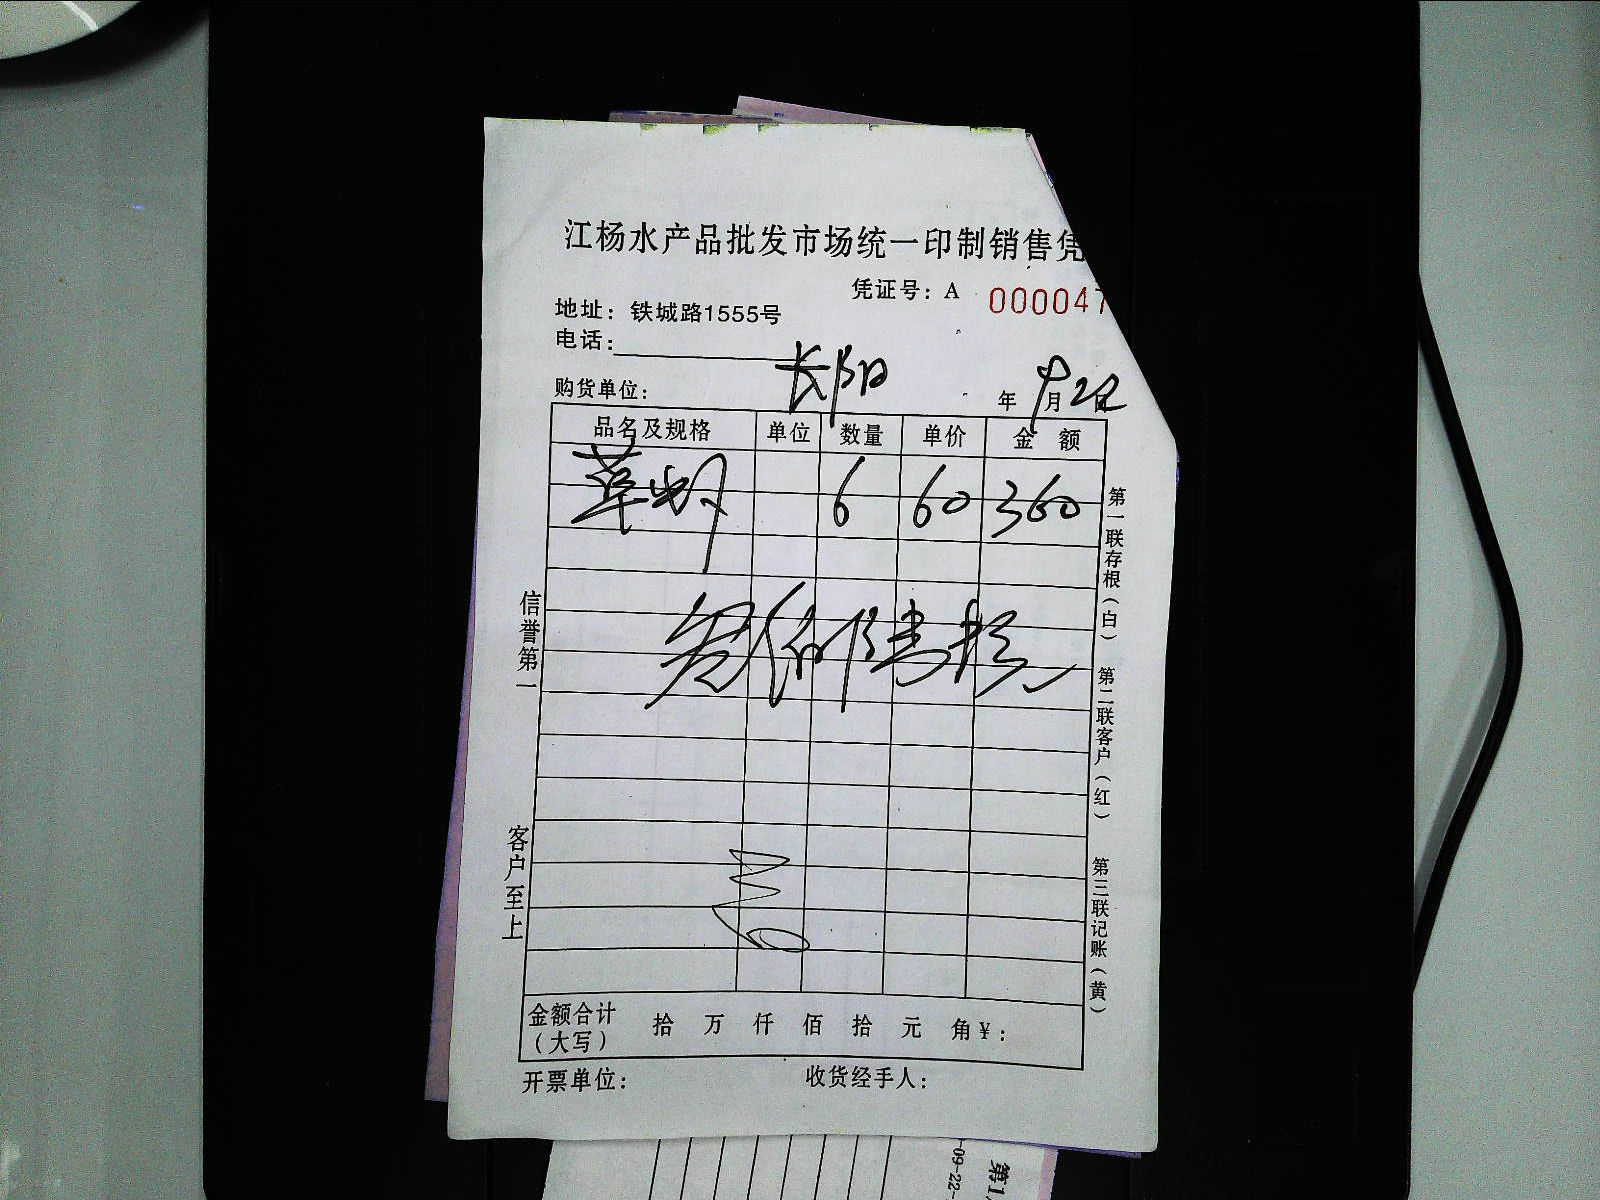 江杨水产品批发市场统一印制销售凭
凭证号：A 000047
地址：铁城路1555号
电话：
购货单位： 长阳 年 9 月 22 日
品名及规格 单位 数量 单价 金 额
草虾 6 60 360
叁佰陆拾元
信誉第一
客户至上
第一联存根（白）
第二联客户（红）
第三联记账（黄）
金额合计（大写） 拾 万 仟 佰 拾 元 角 ¥：
开票单位： 收货经手人：
-09-22-
第1